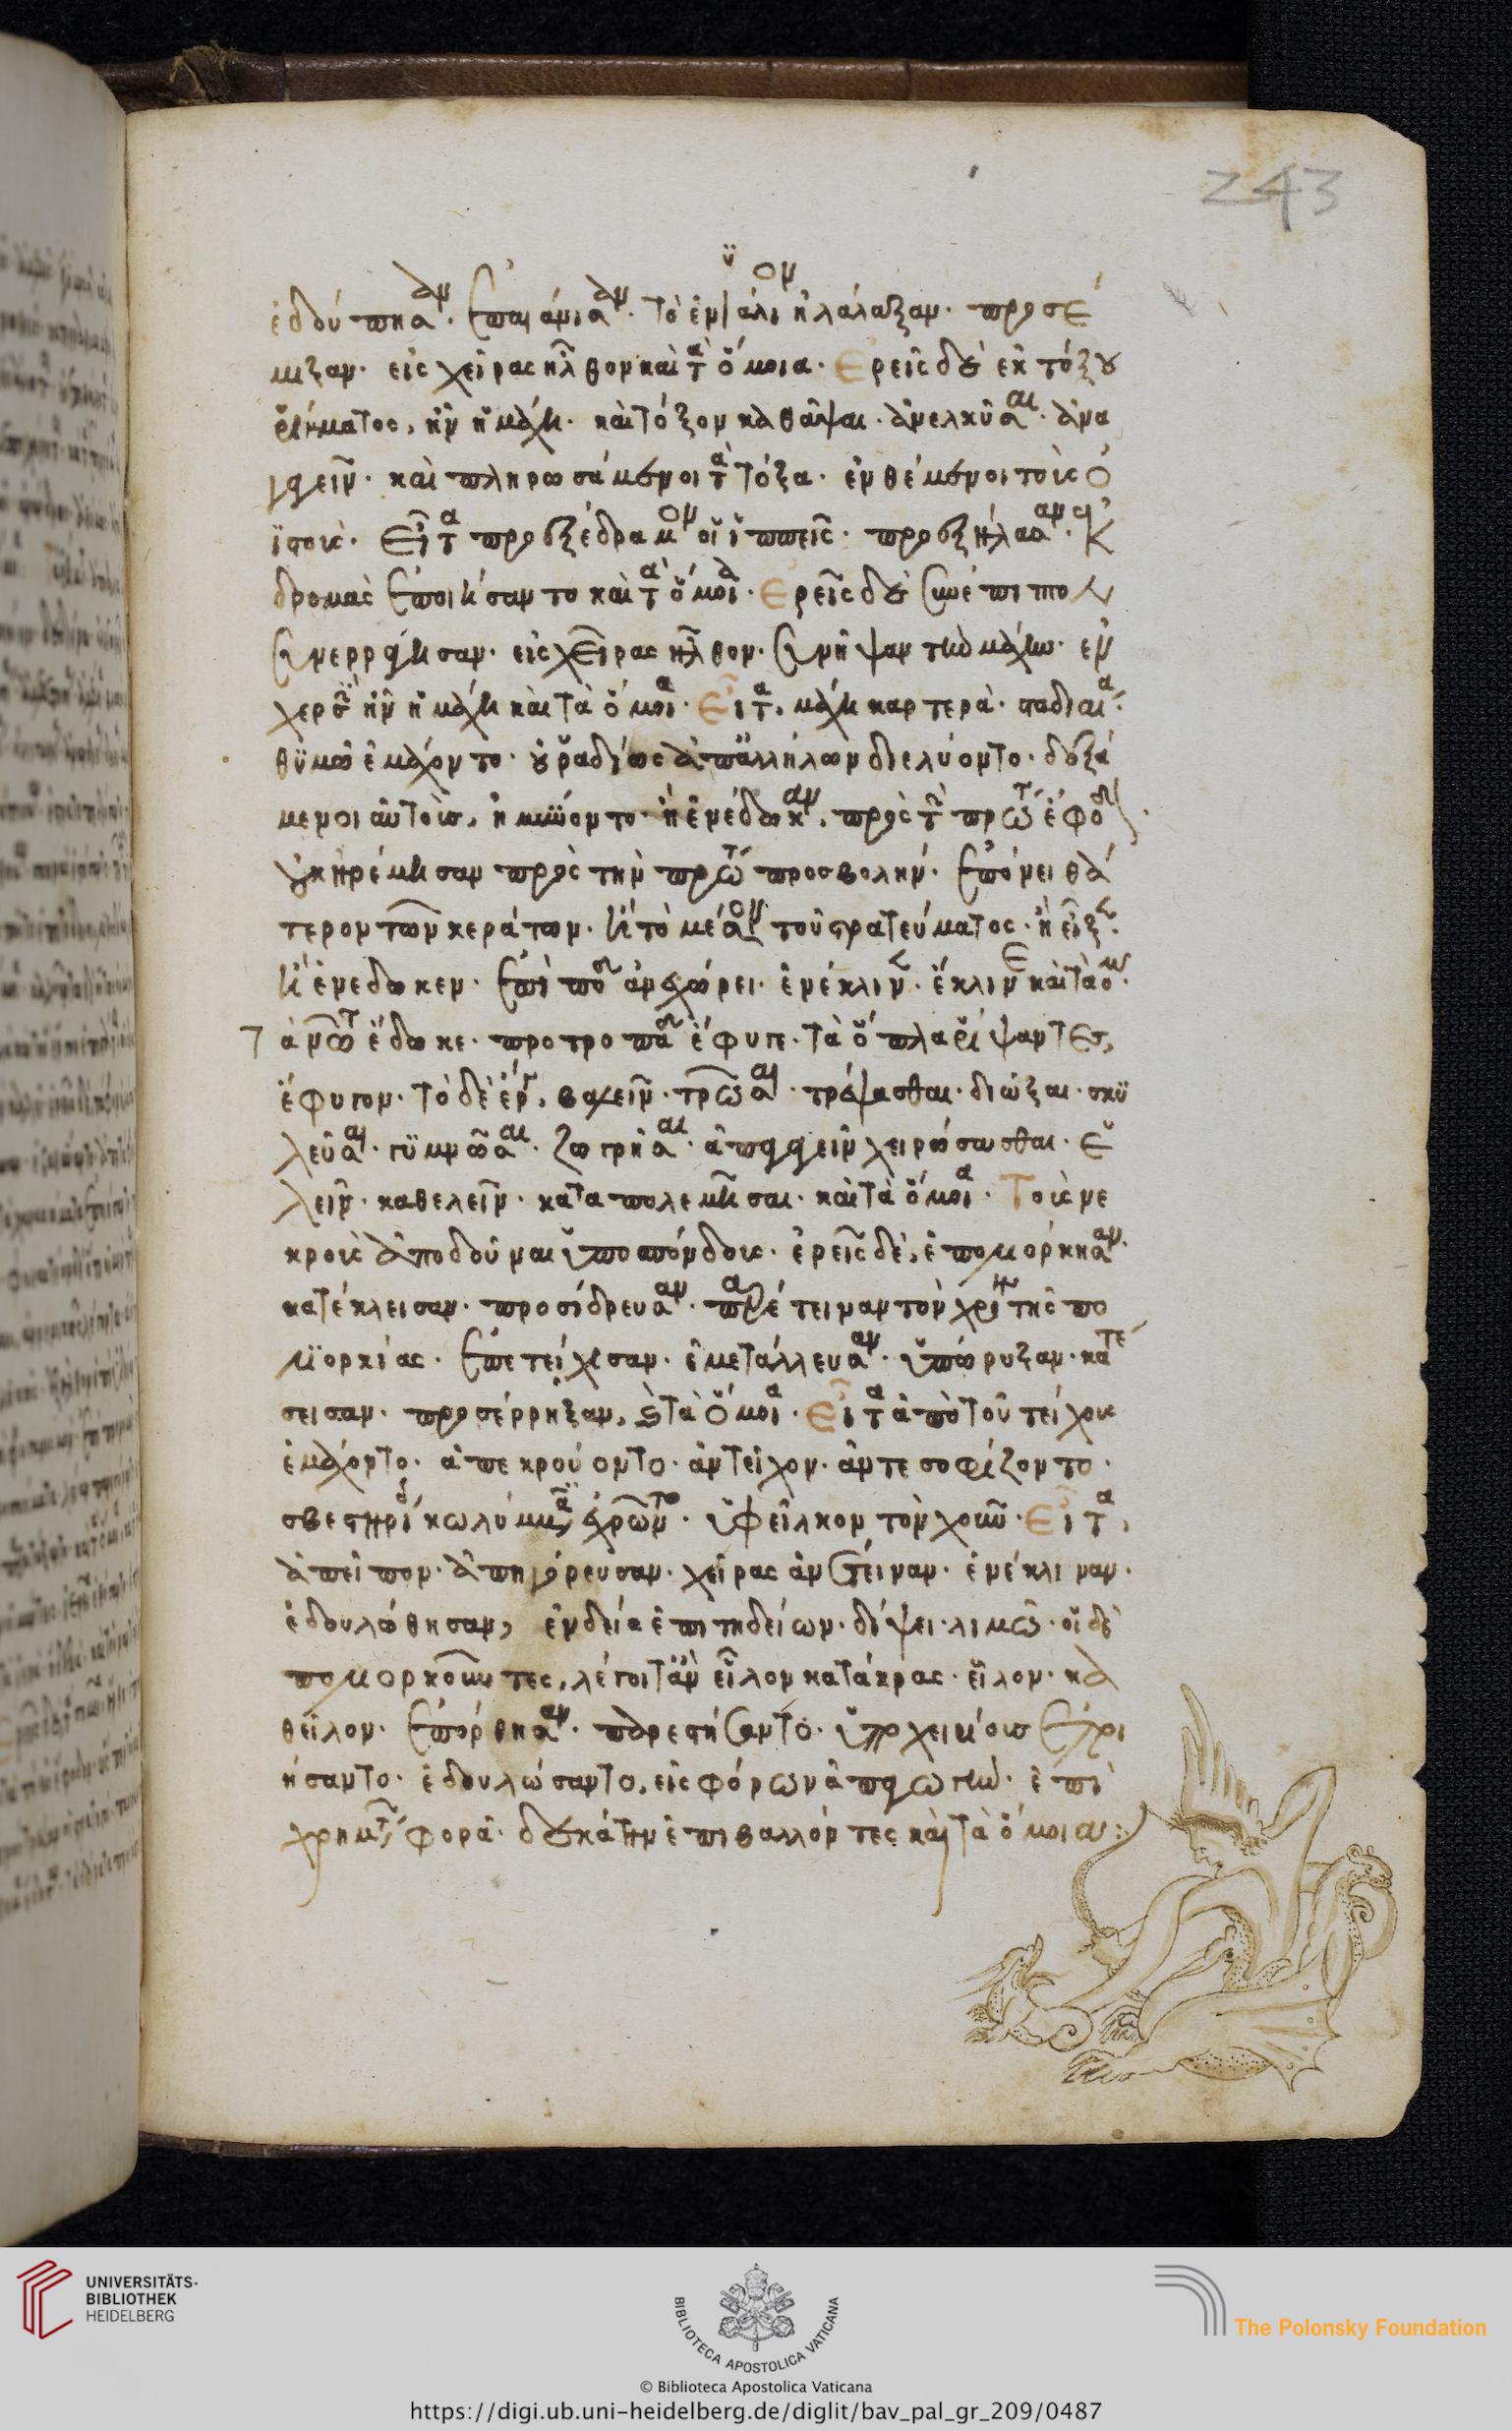 243
ἐδούπησαν. ἐπαιάνισαν. τὸ ἐνυάλιον ἠλάλαξαν. προσέ
μιξαν. εἰς χεῖρας ἦλθον καὶ τὰ ὅμοια. Ἐρεῖς δὲ ἐκ τοξεύ
ματος, ἦν ἡ μάχη. καὶ τόξον καθάψαι. ἀνελκύσαι. ἀνα
γαγεῖν. καὶ πληρωσάμενοι τὰ τόξα. ἐνθέμενοι τοὺς ὀ
ϊστούς. Εἶτα προεξέδραμον οἱ ἱππεῖς. προεξήλασαν.
δρομὰς ἐποιήσαντο καὶ τὰ ὅμοια. Ἐρεῖς δὲ
συνερράγησαν. εἰς χεῖρας ἦλθον. συνῆψαν τὴν μάχην. ἐν
χερσὶν ἦν ἡ μάχη καὶ τὰ ὅμοια. Εἶτα, μάχη καρτερὰ. σταδιαία.
θυμῷ ἐμάχοντο. οὐ ῥαδίως ἀπ' ἀλλήλων διελύοντο. δεξά
μενοι αὐτοὺς, ἠμύνοντο. ἢ ἐνέδωκαν, πρὸς τὴν πρώτην ἔφοδον.
οὐκ ἠρέμησαν πρὸς τὴν πρώτην προσβολήν. ἐπόνει θά
τερον τῶν κεράτων. ἢ τὸ μέσον τοῦ στρατεύματος. ἢ εἶξεν.
ἢ ἐνέδωκεν. ἐπὶ πόδα ἀνεχώρει. ἐνέκλινεν. ἔκλινε καὶ τὰ νῶτα
ἔδωκε. προτροπάδην ἔφυγε. τὰ ὅπλα ῥίψαντες,
ἔφυγον. τὸ δὲ ἔργον, βαλεῖν. τρῶσαι. τρέψασθαι. διῶξαι. σκυ
λεῦσαι. γυμνῶσαι. ζωγρῆσαι. ἀπαγαγεῖν χειρώσασθαι. ἑ
λεῖν. καθελεῖν. καταπολεμῆσαι. καὶ τὰ ὅμοια. Τοὺς νε
κροὺς ἀποδοῦναι ὑποσπόνδους. ἐρεῖς δὲ, ἐπολιόρκησαν.
κατέκλεισαν. προσίδρευσαν. παρέτειναν τὸν χρόνον τῆς πο
λιορκίας. ἐπετείχισαν. ἐμετάλλευσαν. ὑπώρυξαν. κατέ
σεισαν. προσέρρηξαν, καὶ τὰ ὅμοια. Εἶτα ἀπὸ τοῦ τείχους
ἐμάχοντο. ἀπεκρούοντο. ἀντεῖχον. ἀντεσοφίζοντο.
σβεστήρια κωλύματα ἐχρῶντο. ὑφεῖλκον τὸν χοῦν. Εἶτα,
ἀπεῖπον. ἀπηγόρευσαν. χεῖρας ἀνέτειναν. ἐνέκλιναν.
ἐδουλώθησαν, ἐνδείᾳ ἐπιτηδείων. δίψει. λιμῷ. οἱ δὲ
πολιορκοῦντες, λέγοιτ' ἂν εἷλον κατάκρας. εἷλον. κα
θεῖλον. ἐπόρθησαν. παρεστήσαντο. ὑποχειρίους ἐποι
ήσαντο. ἐδουλώσαντο, εἰς φόρων ἀπαγωγὴν. ἐπὶ
χρημάτων φορᾷ. δεκάτην ἐπιβαλλόντες καὶ τὰ ὅμοια:
UNIVERSITÄTS-
BIBLIOTHEK
HEIDELBERG
BIBLIOTECA APOSTOLICA VATICANA
The Polonsky Foundation
© Biblioteca Apostolica Vaticana
https://digi.ub.uni-heidelberg.de/diglit/bav_pal_gr_209/0487